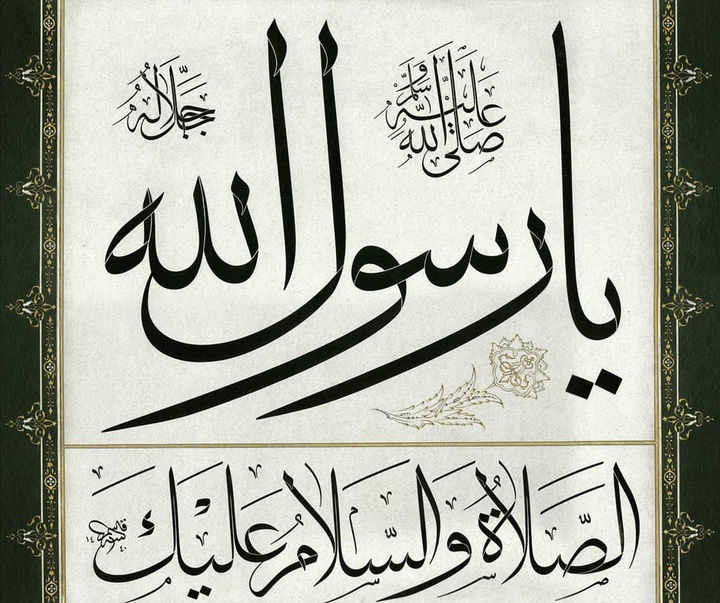 يا رسول الله
صلى الله عليه وسلم
جل جلاله
الصلاة والسلام عليك